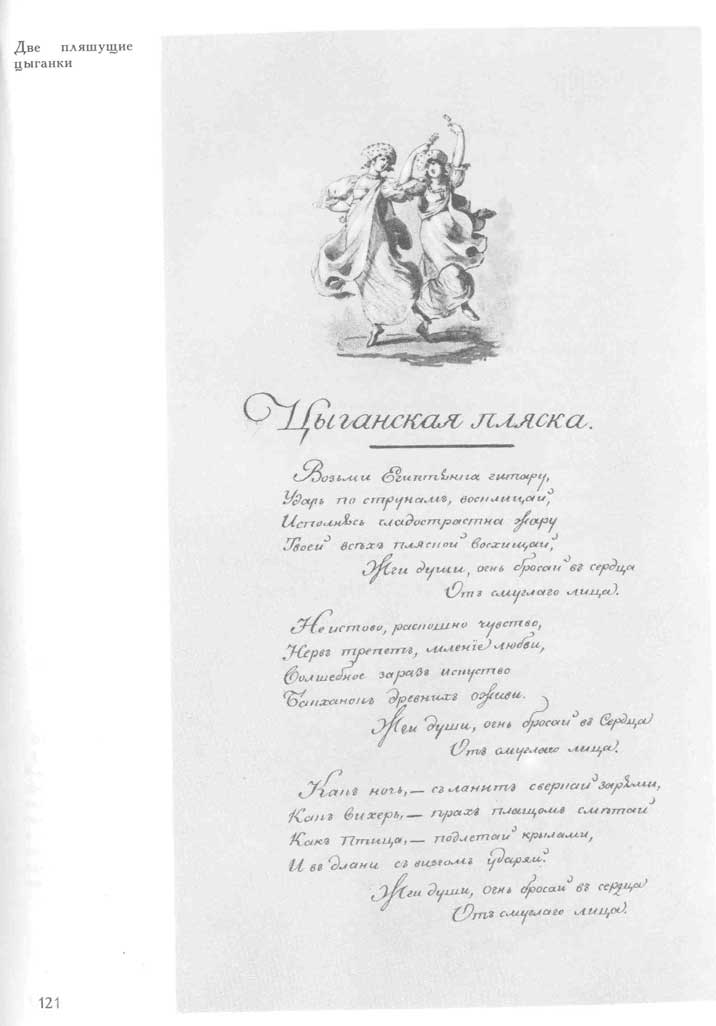 Две пляшущие
цыганки
Цыганская пляска.
Возьми Египтянка гитару,
Ударь по струнамъ, восклицай,
Исполнясь сладострастна жару
Твоей всѣхъ пляской восхищай,
Жги души, огнь бросай въ сердца
Отъ смуглаго лица.
Неистово, роскошно чувство,
Нервъ трепетъ, мленіе любви,
Волшебное заразъ искуство
Вакханокъ древнихъ оживи.
Жги души, огнь бросай въ Сердца
Отъ смуглаго лица.
Какъ ночь, — съ ланитъ сверкай зарями,
Какъ вихерь, — прахъ плащомъ сметай
Какъ птица, — подлетай крылами,
И въ длани съ визгомъ ударяй.
Жги души, огнь бросай въ сердца
Отъ смуглаго лица.
121